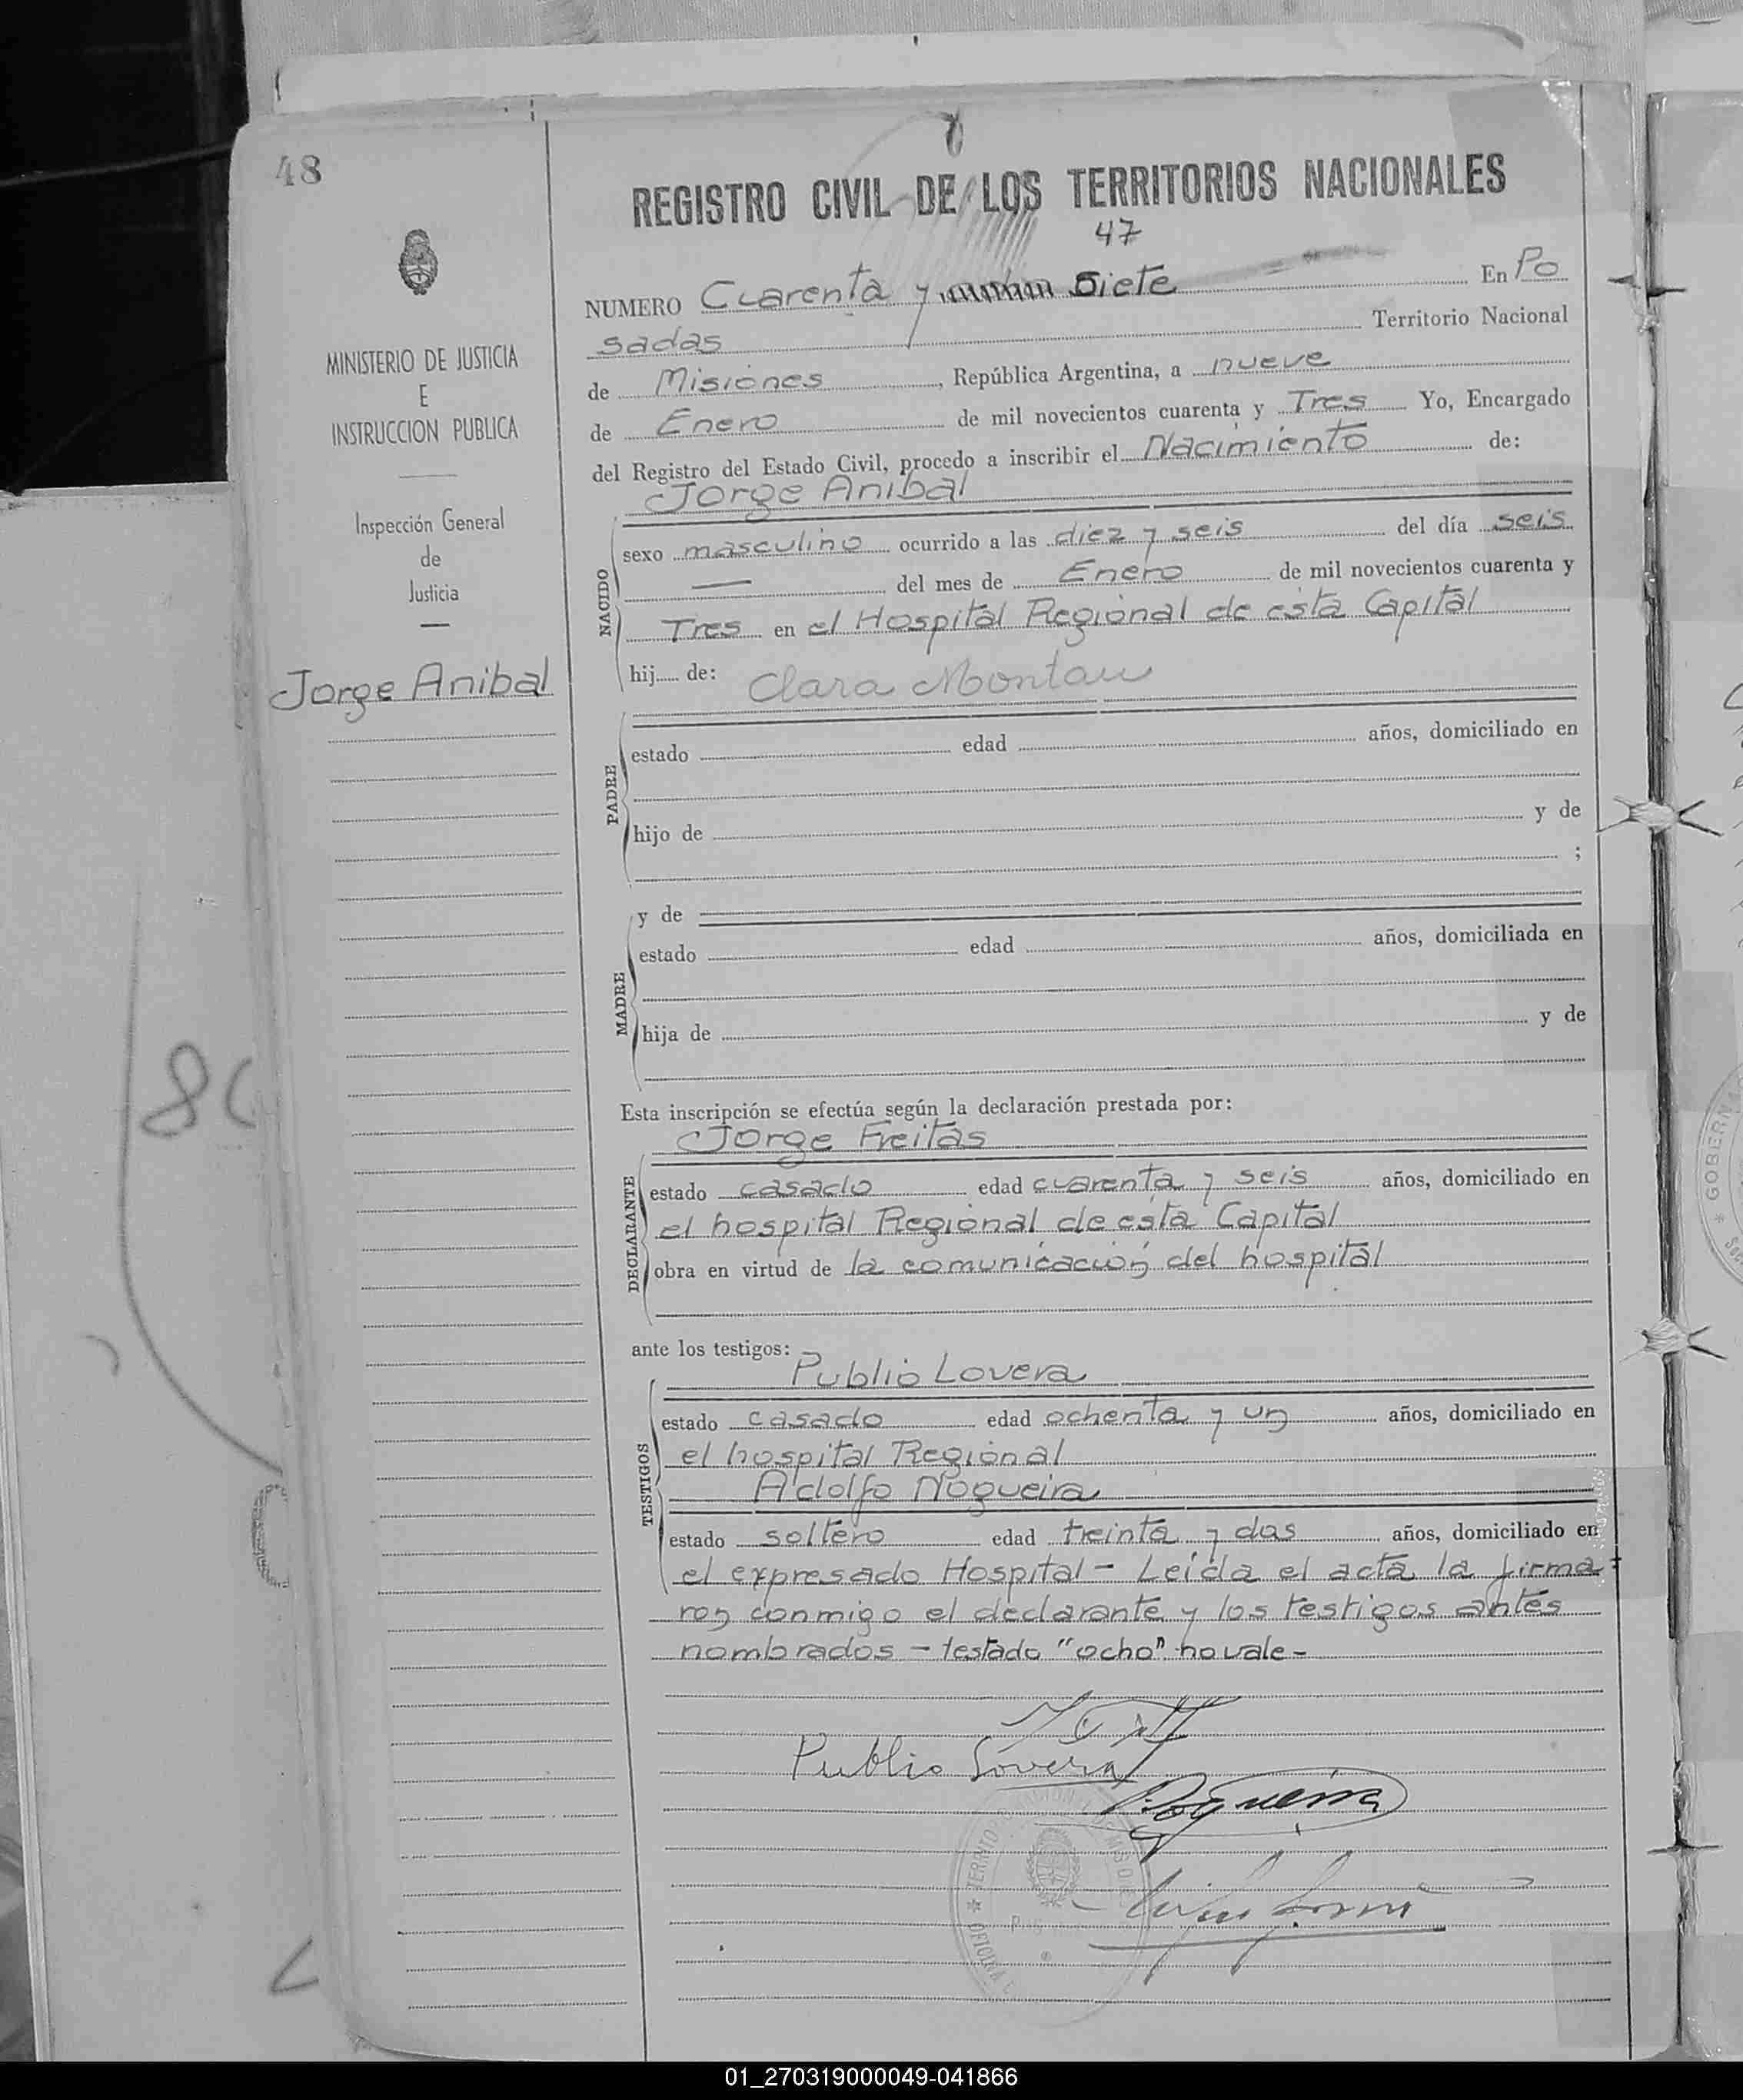 48
REGISTRO CIVIL DE LOS TERRITORIOS NACIONALES
47
NUMERO Cuarenta y Siete En Po
sadas Territorio Nacional
de Misiones, República Argentina, a nueve
de Enero de mil novecientos cuarenta y Tres Yo, Encargado
del Registro del Estado Civil, procedo a inscribir el Nacimiento de:
Jorge Anibal
NACIDO
sexo masculino ocurrido a las diez y seis del día seis
— del mes de Enero de mil novecientos cuarenta y
Tres en el Hospital Regional de esta Capital
hij..... de: Clara Montau
PADRE
estado edad años, domiciliado en
hijo de y de
;
y de
MADRE
estado edad años, domiciliada en
hija de y de
Esta inscripción se efectúa según la declaración prestada por:
Jorge Freitas
DECLARANTE
estado casado edad cuarenta y seis años, domiciliado en
el hospital Regional de esta Capital
obra en virtud de la comunicación del hospital
ante los testigos:
Publio Lovera
TESTIGOS
estado casado edad ochenta y un años, domiciliado en
el hospital Regional
Adolfo Nogueira
estado soltero edad treinta y dos años, domiciliado en
el expresado Hospital - Leida el acta la firma=
ron conmigo el declarante y los testigos antes
nombrados - testado "ocho" no vale -
Publio Lovera
Nogueira
MINISTERIO DE JUSTICIA
E
INSTRUCCION PUBLICA
Inspección General
de
Justicia
Jorge Anibal
01_270319000049-041866